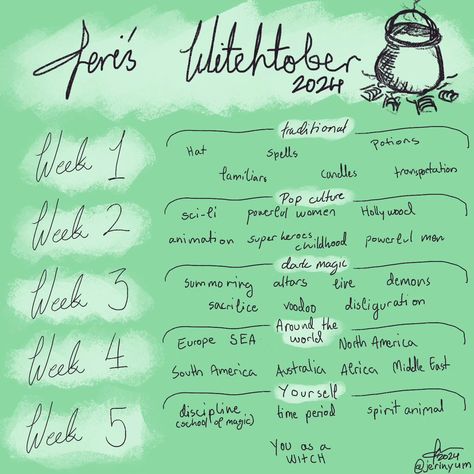 Jeri's Witchtober
2024
Week 1
traditional
Hat spells potions
familiars candles transportation
Week 2
Pop culture
sci-fi powerful women Hollywood
animation superheroes childhood powerful men
Week 3
dark magic
summoning altars live demons
sacrilice voodoo disliguration
Week 4
Around the
world
Europe SEA North America
South America Australia Africa Middle East
Week 5
Yourself
discipline time period spirit animal
(school of magic)
You as a
WITCH
2024
@jerinyum